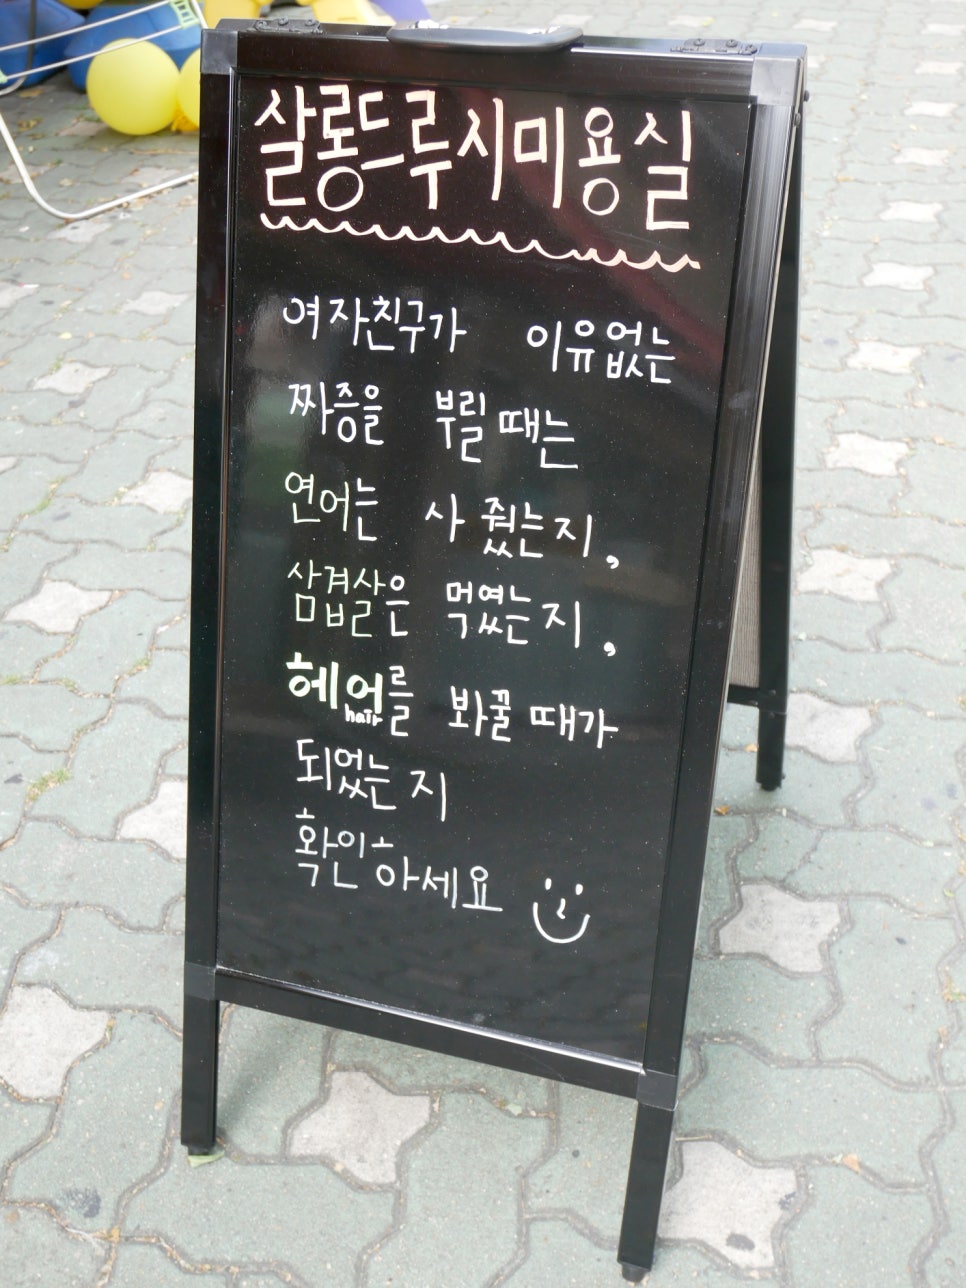 살롱드루시미용실
여자친구가 이유없는
짜증을 부릴때는
연어는 사 줬는지,
삼겹살은 먹였는지,
헤어를 봐꿀때가
hair
되었는지
확인하세요